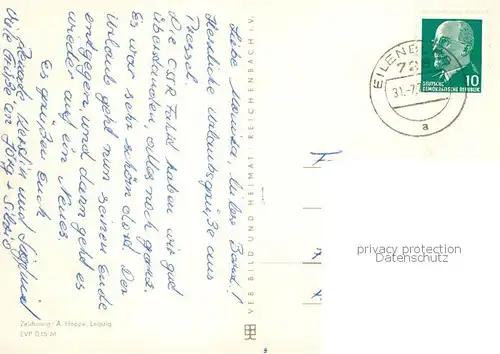 Liebe Monika, lieber Bernd!
Herzliche Urlaubsgrüße aus
Die ČSSR Fahrt haben wir gut
überstanden, alles noch ganz.
Es war sehr schön dort. Der
Urlaub geht nun seinem Ende
entgegen, und dann geht es
wieder auf ein Neues.
Es grüßen euch
Kerstin und Siegfried
Viele Grüße an Jörg + Silvio
Zeichnung: A. Hoppe, Leipzig
EVP 0,15 M
VEB BILD UND HEIMAT · REICHENBACH I. V.
EILENB
728
31.-7.7
a
DEUTSCHE
DEMOKRATISCHE REPUBLIK
10
privacy protection
Datenschutz